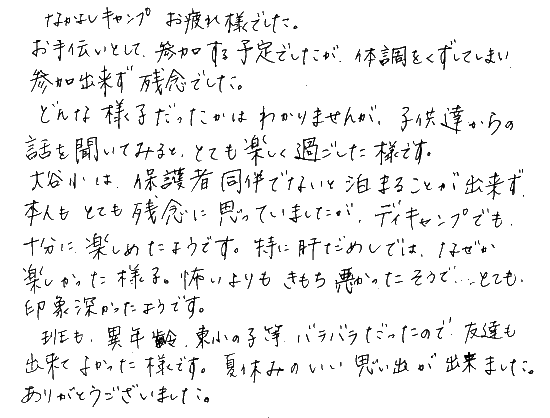 なかよしキャンプ お疲れ様でした。
お手伝いとして、参加する予定でしたが、体調をくずしてしまい、
参加出来ず残念でした。
どんな様子だったかはわかりませんが、子供達からの
話を聞いてみると、とても楽しく過ごした様です。
大谷小は、保護者同伴でないと泊まることが出来ず、
本人もとても残念に思っていましたが、デイキャンプでも、
十分に楽しめたようです。特に肝だめしでは、なぜか
楽しかった様子。怖いよりもきもち悪かったそうで…とても、
印象深かったようです。
班も、異年齢、東小の子等、バラバラだったので、友達も
出来てよかった様です。夏休みのいい思い出が出来ました。
ありがとうございました。